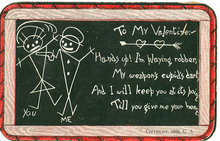 To My Valentine.-
Hands up! I'm playing robber,
My weapons cupids dart
And I will keep you at its bay,
Till you give me your heart
YOU
ME
Copyright, 1906, G. A